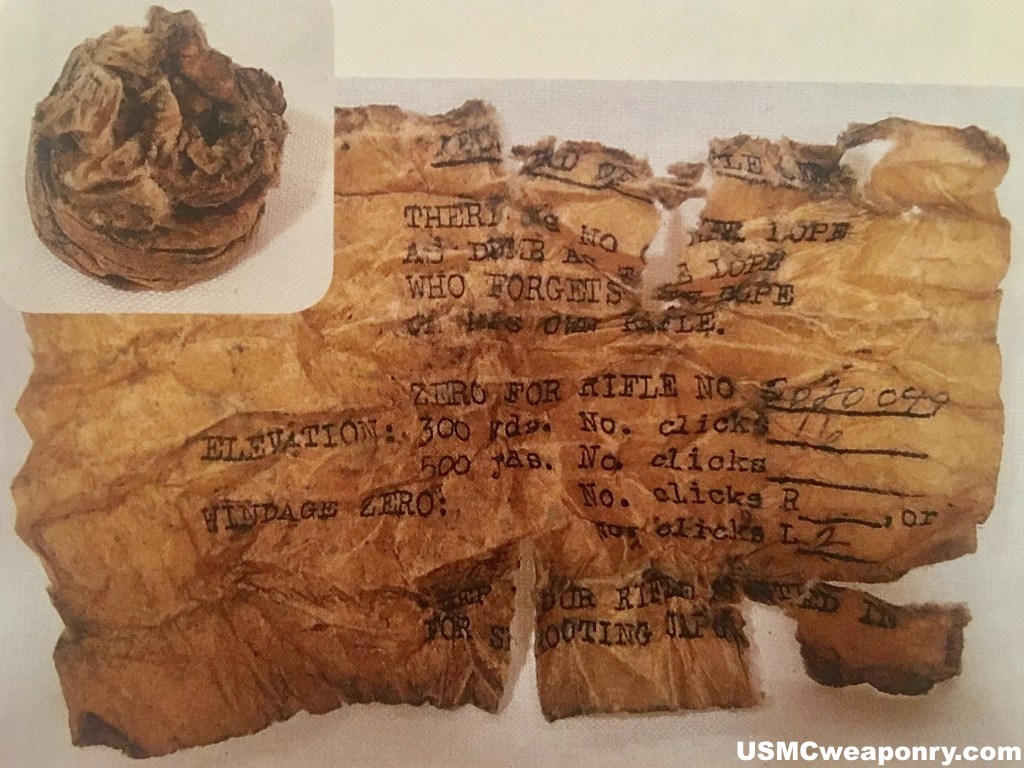 THERE IS NO LOPE
AS DUMB AS THE LOPE
WHO FORGETS THE DOPE
ON HIS OWN RIFLE.
ZERO FOR RIFLE NO
ELEVATION: 300 yds. No. clicks 16
500 yds. No. clicks
WINDAGE ZERO: No. clicks R____, or
No. clicks L 2
YOUR RIFLE IN
FOR SHOOTING JAPS
USMCweaponry.com